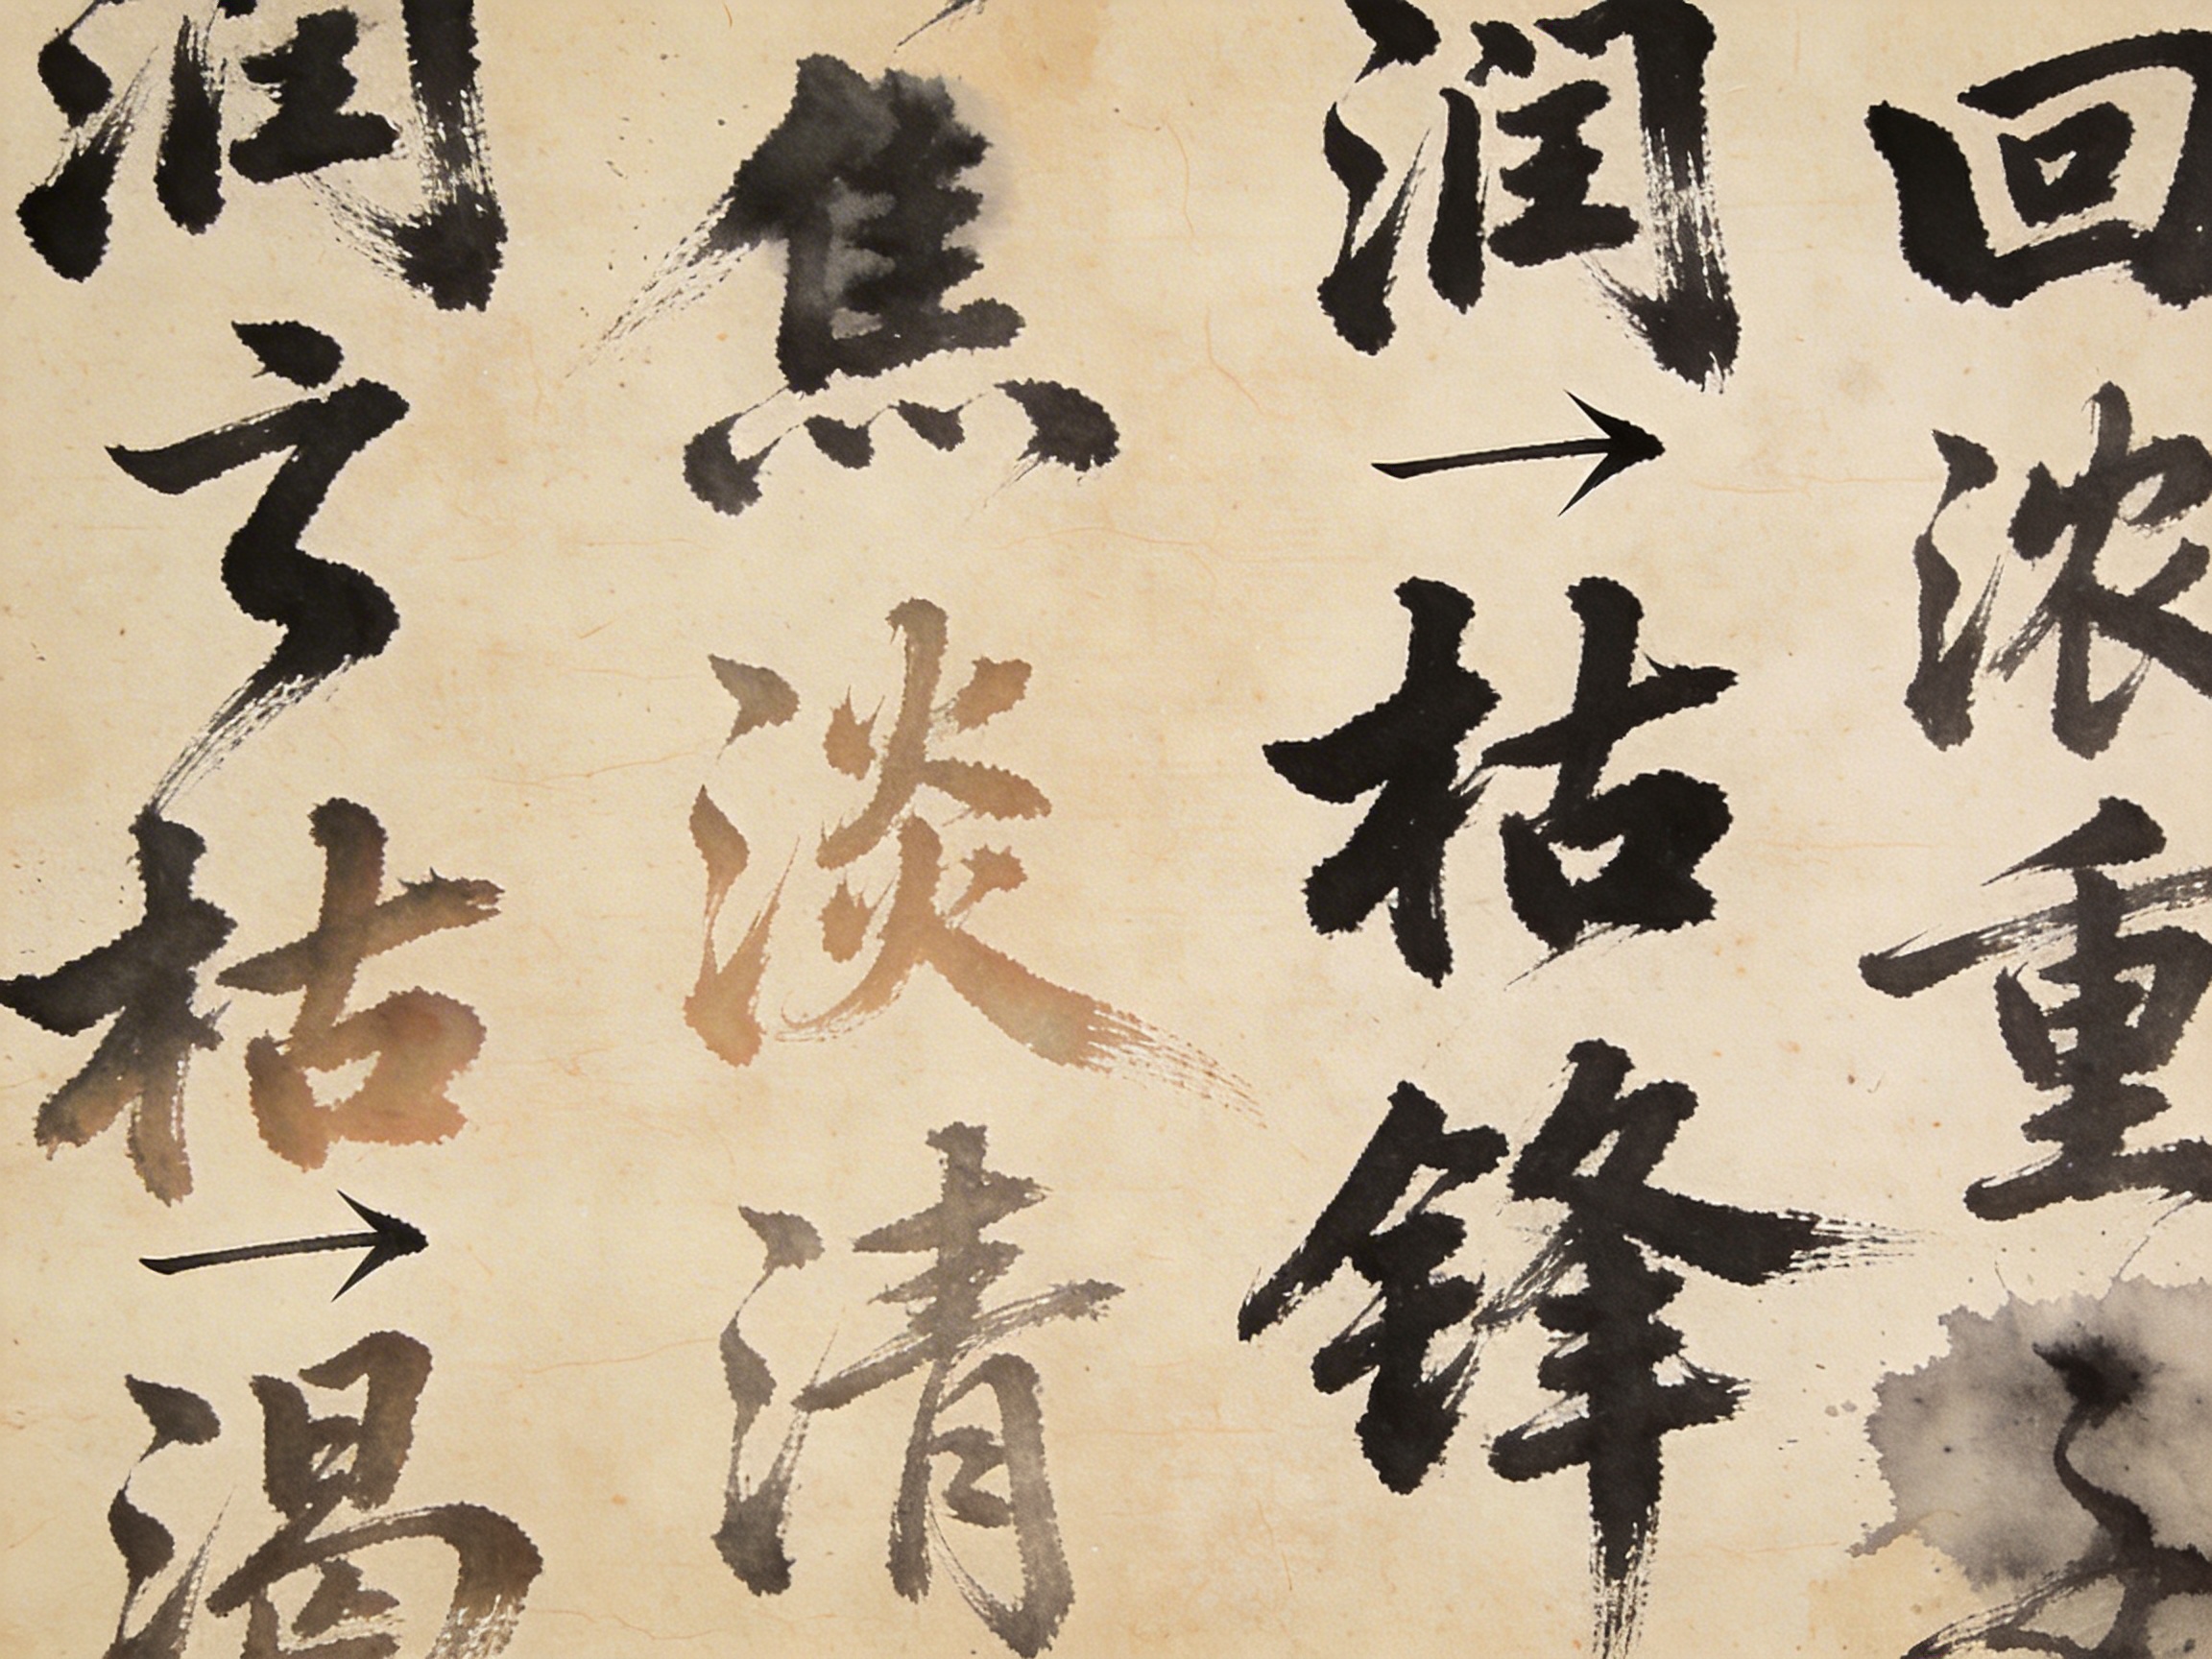 回浓重
润→枯锋
焦淡清
润之枯→渴